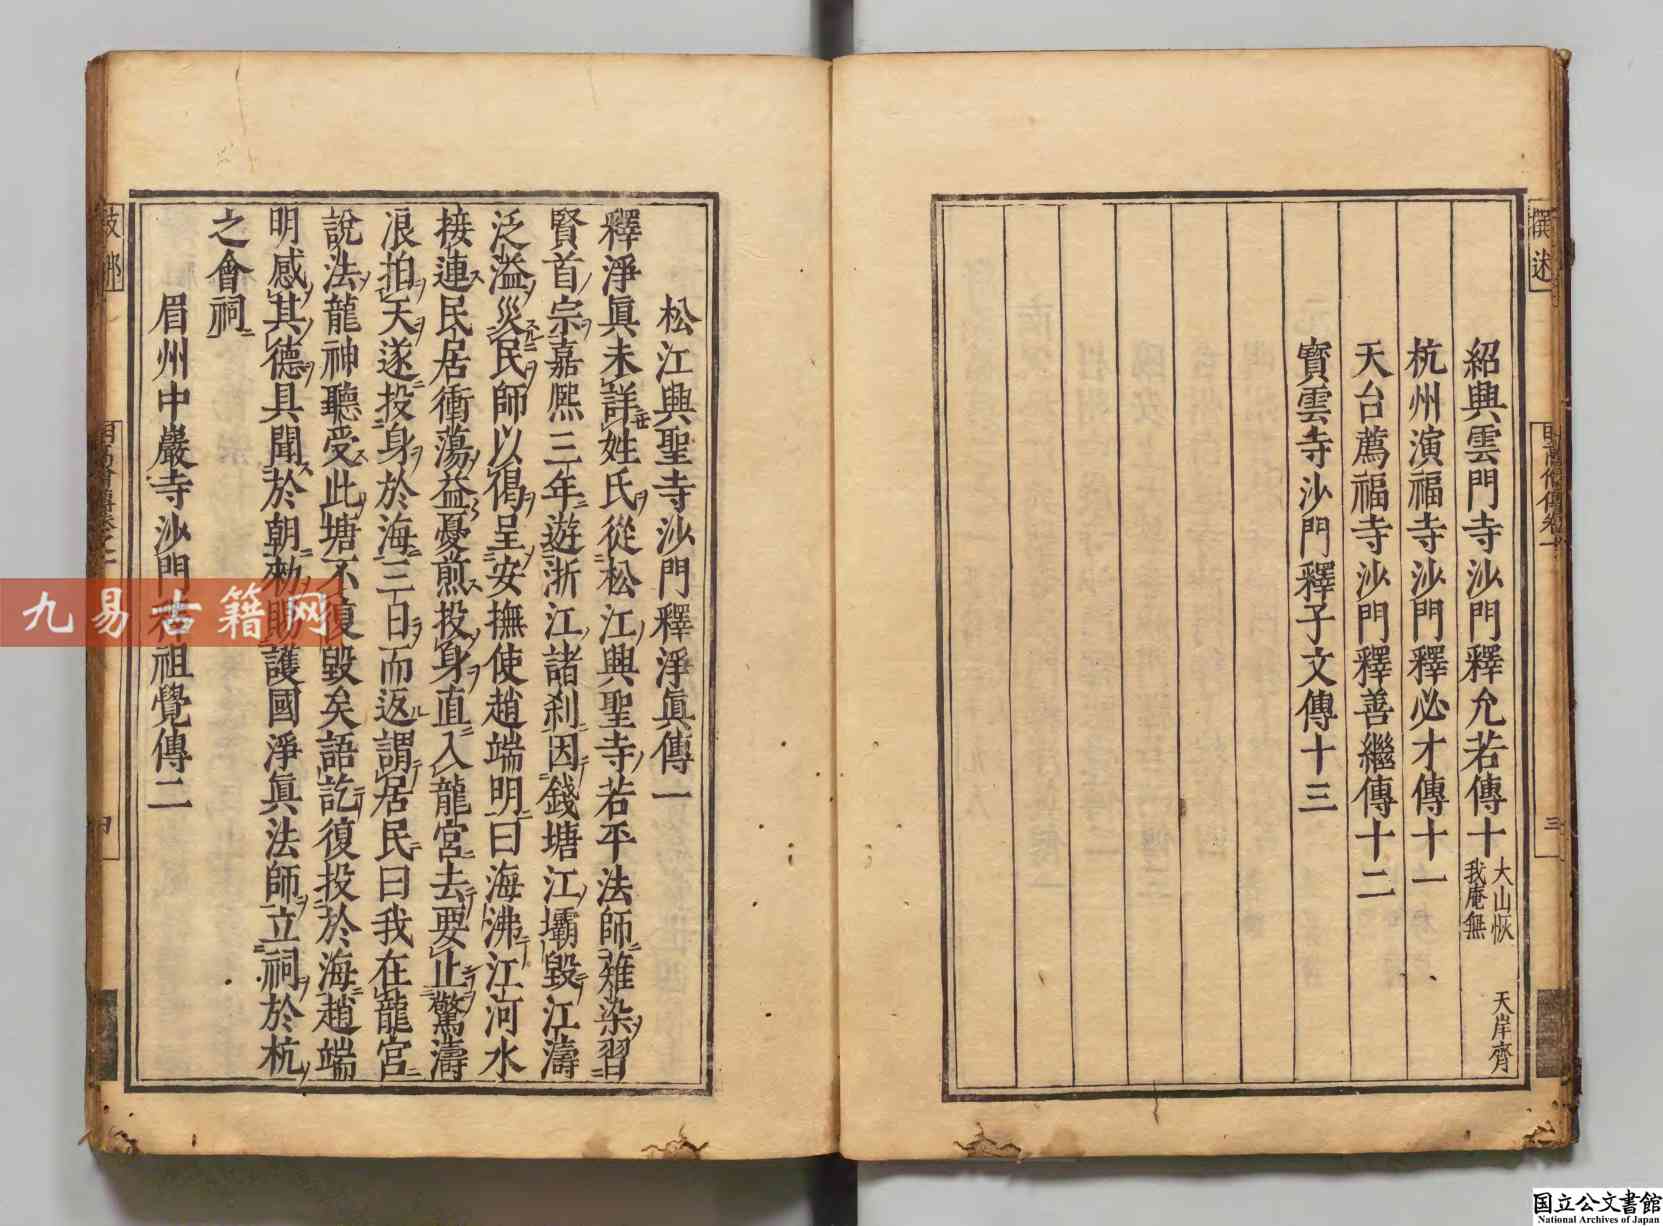 紹興雲門寺沙門釋允若傳十 大山恢 我庵無 天岸齊
杭州演福寺沙門釋必才傳十一
天台薦福寺沙門釋善繼傳十二
寶雲寺沙門釋子文傳十三
撰述
三
松江興聖寺沙門釋淨真傳一
釋淨真未詳姓氏從松江興聖寺若平法師薙染習
賢首宗嘉熙三年遊浙江諸剎因錢塘江壩毀江濤
泛溢災民師以偈呈安撫使趙端明曰海沸江河水
接連民居衝蕩益憂煎投身直入龍宮去要止驚濤
浪拍天遂投身於海三日而返謂居民曰我在龍宮
說法龍神聽受此塘不復毀矣語訖復投於海趙端
明感其德具聞於朝勅賜護國淨真法師立祠於杭
之會祠
眉州中巖寺沙門釋祖覺傳二
九易古籍网
国立公文書館
National Archives of Japan